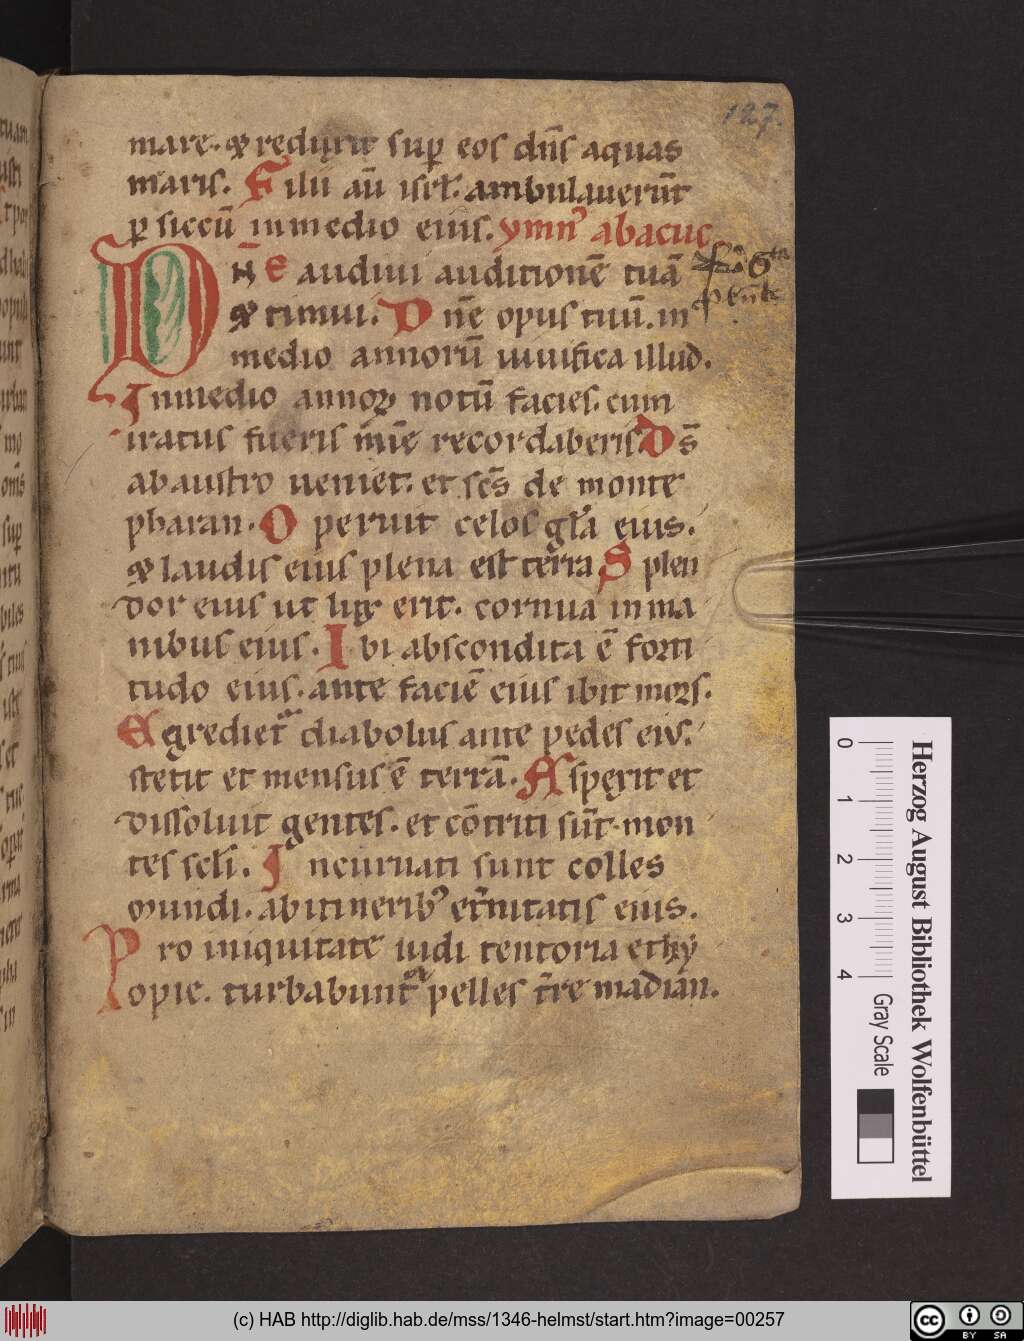 127.
mare. & reduxit sup eos dn̄s aquas
maris. Filii aū isrł. ambulauerūt
p siccū inmedio eius. ymnꝰ abacuc
DN̄E audiui auditionē tuā
& timui. Dn̄e opus tuū. in
medio annorū uiuifica illud.
Inmedio annoꝝ notū facies. cum
iratus fueris mīe recordaberis Ds̄
abaustro ueniet. et scs̄ de monte
pharan. Operuit celos gła eius.
& laudis eius plena est terra Splen
dor eius ut lux erit. cornua inma
nibus eius. Ibi abscondita ē forti
tudo eius. ante faciē eius ibit mors.
Egrediet diabolus ante pedes eius.
stetit et mensus ē terrā. Aspexit et
dissoluit gentes. et cōtriti sūt mon
tes scłi. Incuruati sunt colles
mundi. abitineribꝰ et̄nitatis eius.
Pro iniquitate uidi tentoria ethy
opie. turbabunt pelles t̄re madian.
0 1 2 3 4
Gray Scale
Herzog August Bibliothek Wolfenbüttel
(c) HAB http://diglib.hab.de/mss/1346-helmst/start.htm?image=00257
cc BY SA